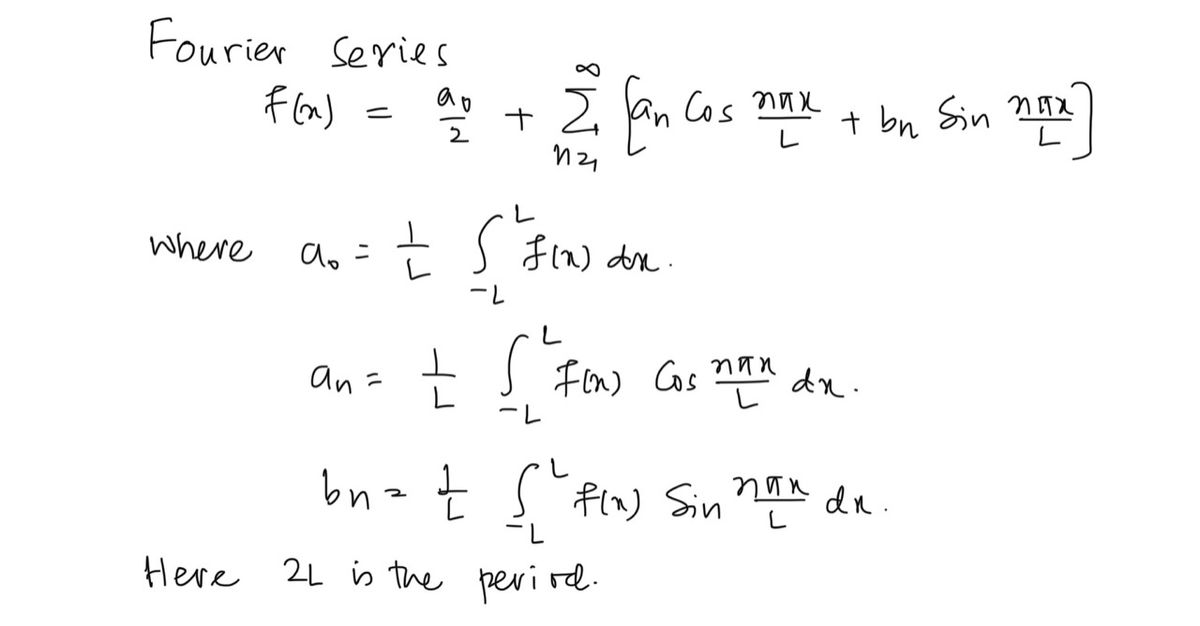 Fourier Series
f(x) = a₀/2 + ∑_{n=1}^{∞} [aₙ Cos nπx/L + bₙ Sin nπx/L]
where a₀ = 1/L ∫_{-L}^{L} f(x) dx.
aₙ = 1/L ∫_{-L}^{L} f(x) Cos nπx/L dx.
bₙ = 1/L ∫_{-L}^{L} f(x) Sin nπx/L dx.
Here 2L is the period.